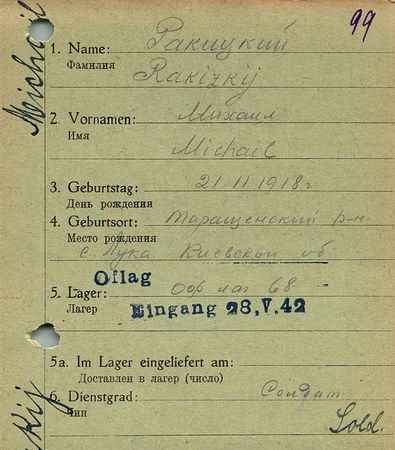 99
Michail
1. Name: Ракицкий
Фамилия
Rakizkij
2. Vornamen: Михаил
Имя
Michail
3. Geburtstag: 21-11-1918г
День рождения
4. Geburtsort: Таращенский р-н
Место рождения
с Лука Киевской об
Oflag
5. Lager: Оф лаг 68
Лагер
Eingang 28.V.42
5a. Im Lager eingeliefert am:
Доставлен в лагер (число)
6. Dienstgrad: Солдат
Чин
Sold.